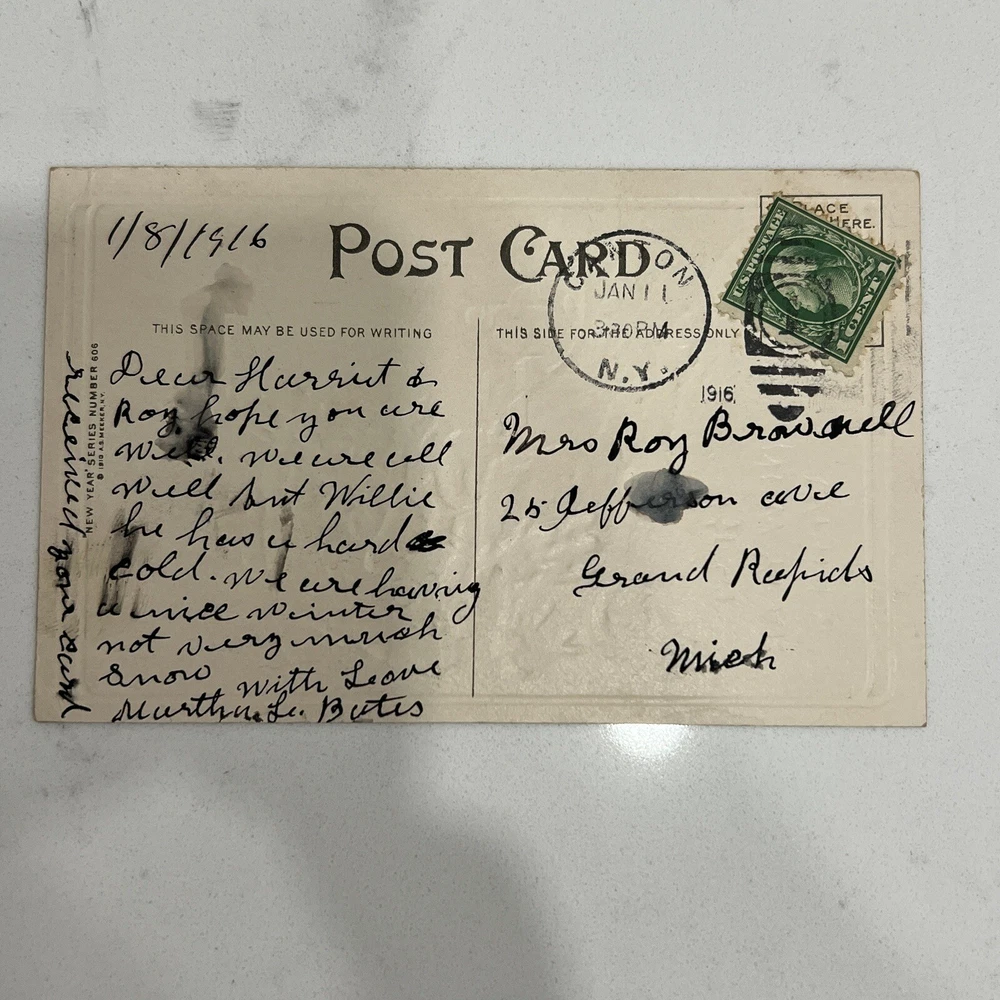 1/8/1916
POST CARD
PLACE
HERE.
U.S. POSTAGE
1 CENT 1
JAN 11
3 30 PM
N.Y.
1916
THIS SPACE MAY BE USED FOR WRITING
THIS SIDE FOR THE ADDRESS ONLY
Dear Harriet &
Roy hope you are
Well. we are all
well but Willie
he has a hard
cold. we are having
a nice winter
not very much
Snow
With Love
Martha L. Bates
received your card
NEW YEAR SERIES NUMBER 606
© 1910 A.S. MEEKER, N.Y.
Mrs Roy Brownell
25 Jefferson ave
Grand Rapids
Mich